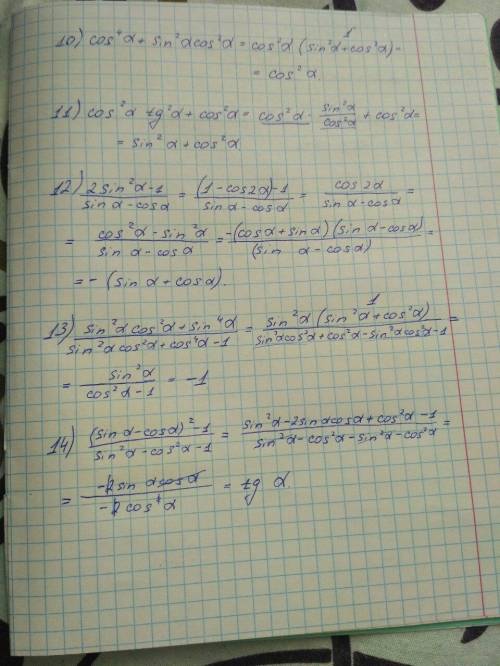 1
10) cos⁴α + sin²α cos²α = cos²α (sin²α + cos²α) =
= cos²α.
11) cos²α tg²α + cos²α = cos²α · sin²α/cos²α + cos²α =
= sin²α + cos²α
12) (2sin²α - 1)/(sin α - cos α) = ((1 - cos2α) - 1)/(sin α - cos α) = cos 2α/(sin α - cos α) =
= (cos²α - sin²α)/(sin α - cos α) = -(cos α + sin α)(sin α - cos α)/(sin α - cos α) =
= - (sin α + cos α).
1
13) (sin²α cos²α + sin⁴α)/(sin²α cos²α + cos⁴α - 1) = sin²α (sin²α + cos²α)/(sin²α cos²α + cos²α - sin²α cos²α - 1) =
= sin²α/(cos²α - 1) = -1
14) ((sin α - cos α)² - 1)/(sin²α - cos²α - 1) = (sin²α - 2sin α cos α + cos²α - 1)/(sin²α - cos²α - sin²α - cos²α) =
= -2 sin α cos α/(-2 cos²α) = tg α.